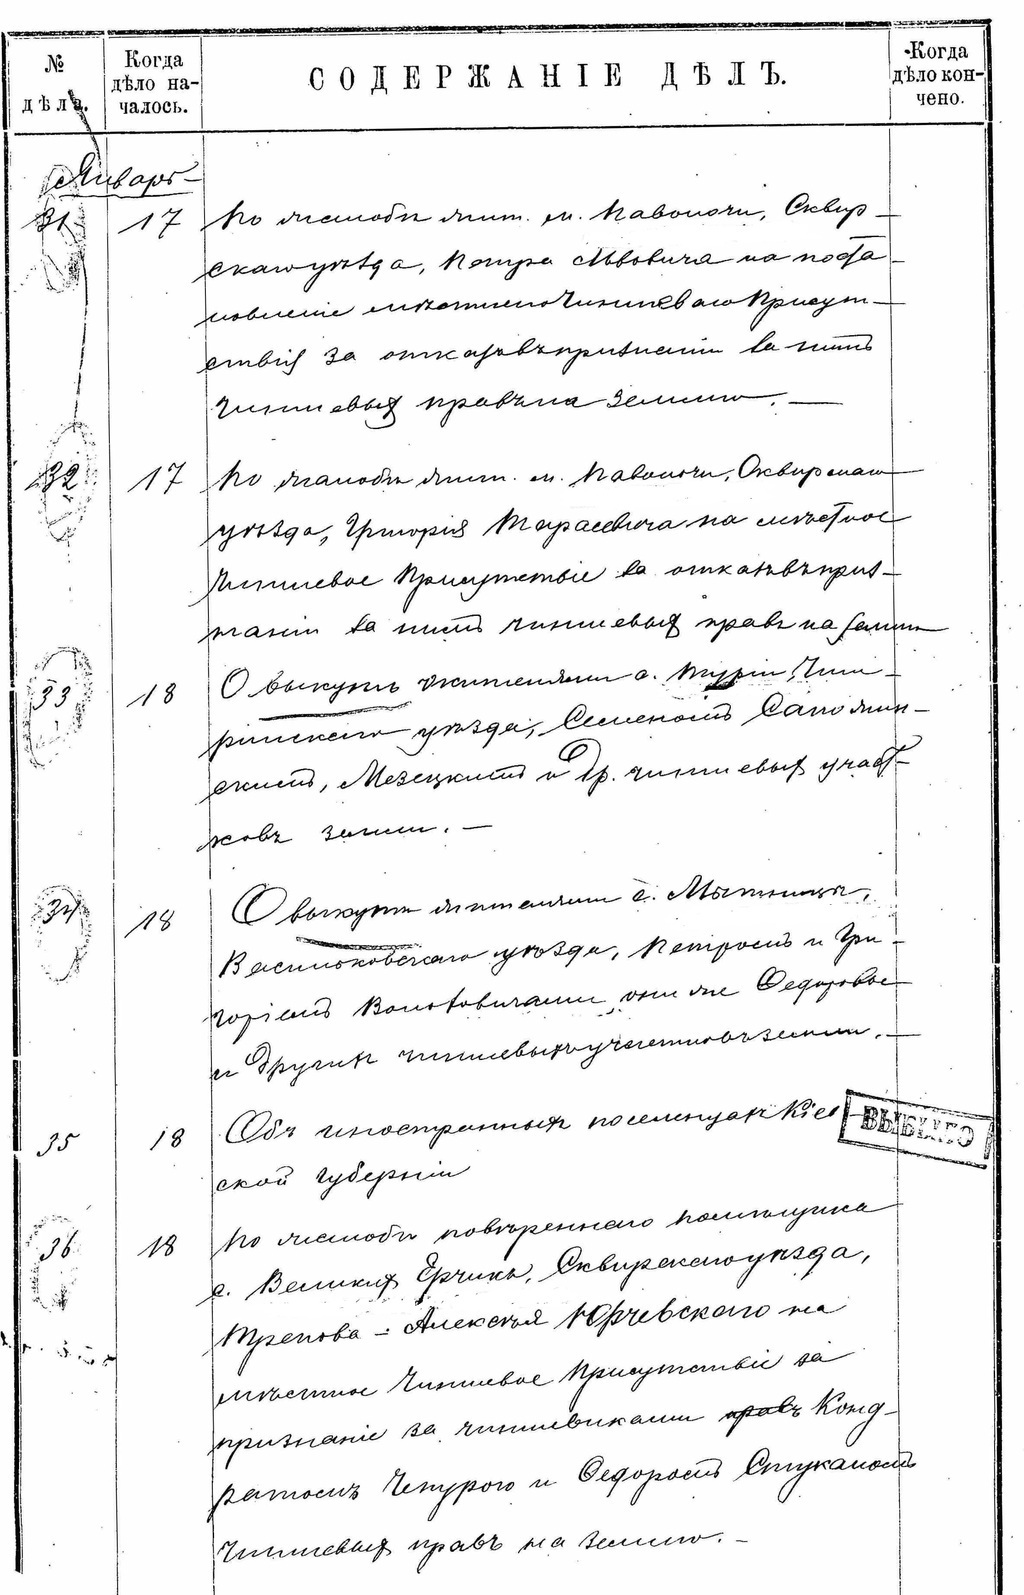 № дѣла.
Когда дѣло на-
чалось.
СОДЕРЖАНІЕ ДѢЛЪ.
Когда дѣло кон-
чено.
Январь
31 17 По жалобѣ жит. м. Паволочи, Сквир-
скаго уѣзда, Петра Львовича на поста-
новленіе мѣстнаго Чиншеваго Присут-
ствія за отказъ въ признаніи за нимъ
чиншевыхъ правъ на землю. —
32 17 По жалобѣ жит. м. Паволочи, Сквирскаго
уѣзда, Григорія Тарасевича на мѣстное
Чиншевое Присутствіе за отказъ въ приз-
наніи за нимъ чиншевыхъ правъ на землю
33 18 О выкупѣ жителями с. Туріи, Чиги-
ринскаго уѣзда, Семеномъ
Мезецкимъ и др. чиншевыхъ участ-
ковъ земли. —
34 18 О выкупѣ жителями с. Мытницы,
Васильковскаго уѣзда, Петромъ и Гри-
горіемъ они же Федоровы
и другихъ чиншевыхъ участковъ земли. —
35 18 Объ иностранныхъ поселенцахъ Кіев-
ской губерніи
ВЫБЫЛО
36 18 По жалобѣ повѣреннаго помѣщика
с. Великихъ Ерчикъ, Сквирскаго уѣзда,
Трепова - Алексѣя Юрчевскаго на
мѣстное Чиншевое Присутствіе за
признаніе за чиншевиками правъ Конд-
ратомъ Чепурою и Федоромъ Стукаломъ
чиншевыхъ правъ на землю. —